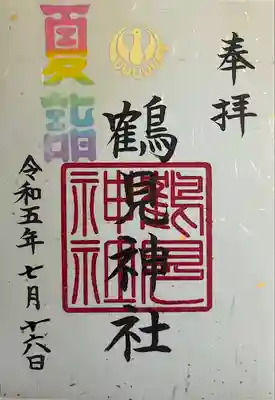 奉拝
鶴見神社
鶴見
神社
夏詣
令和五年七月十六日